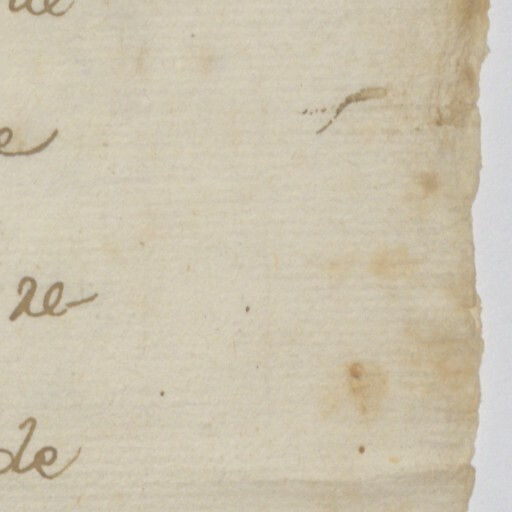 de
e
re
de